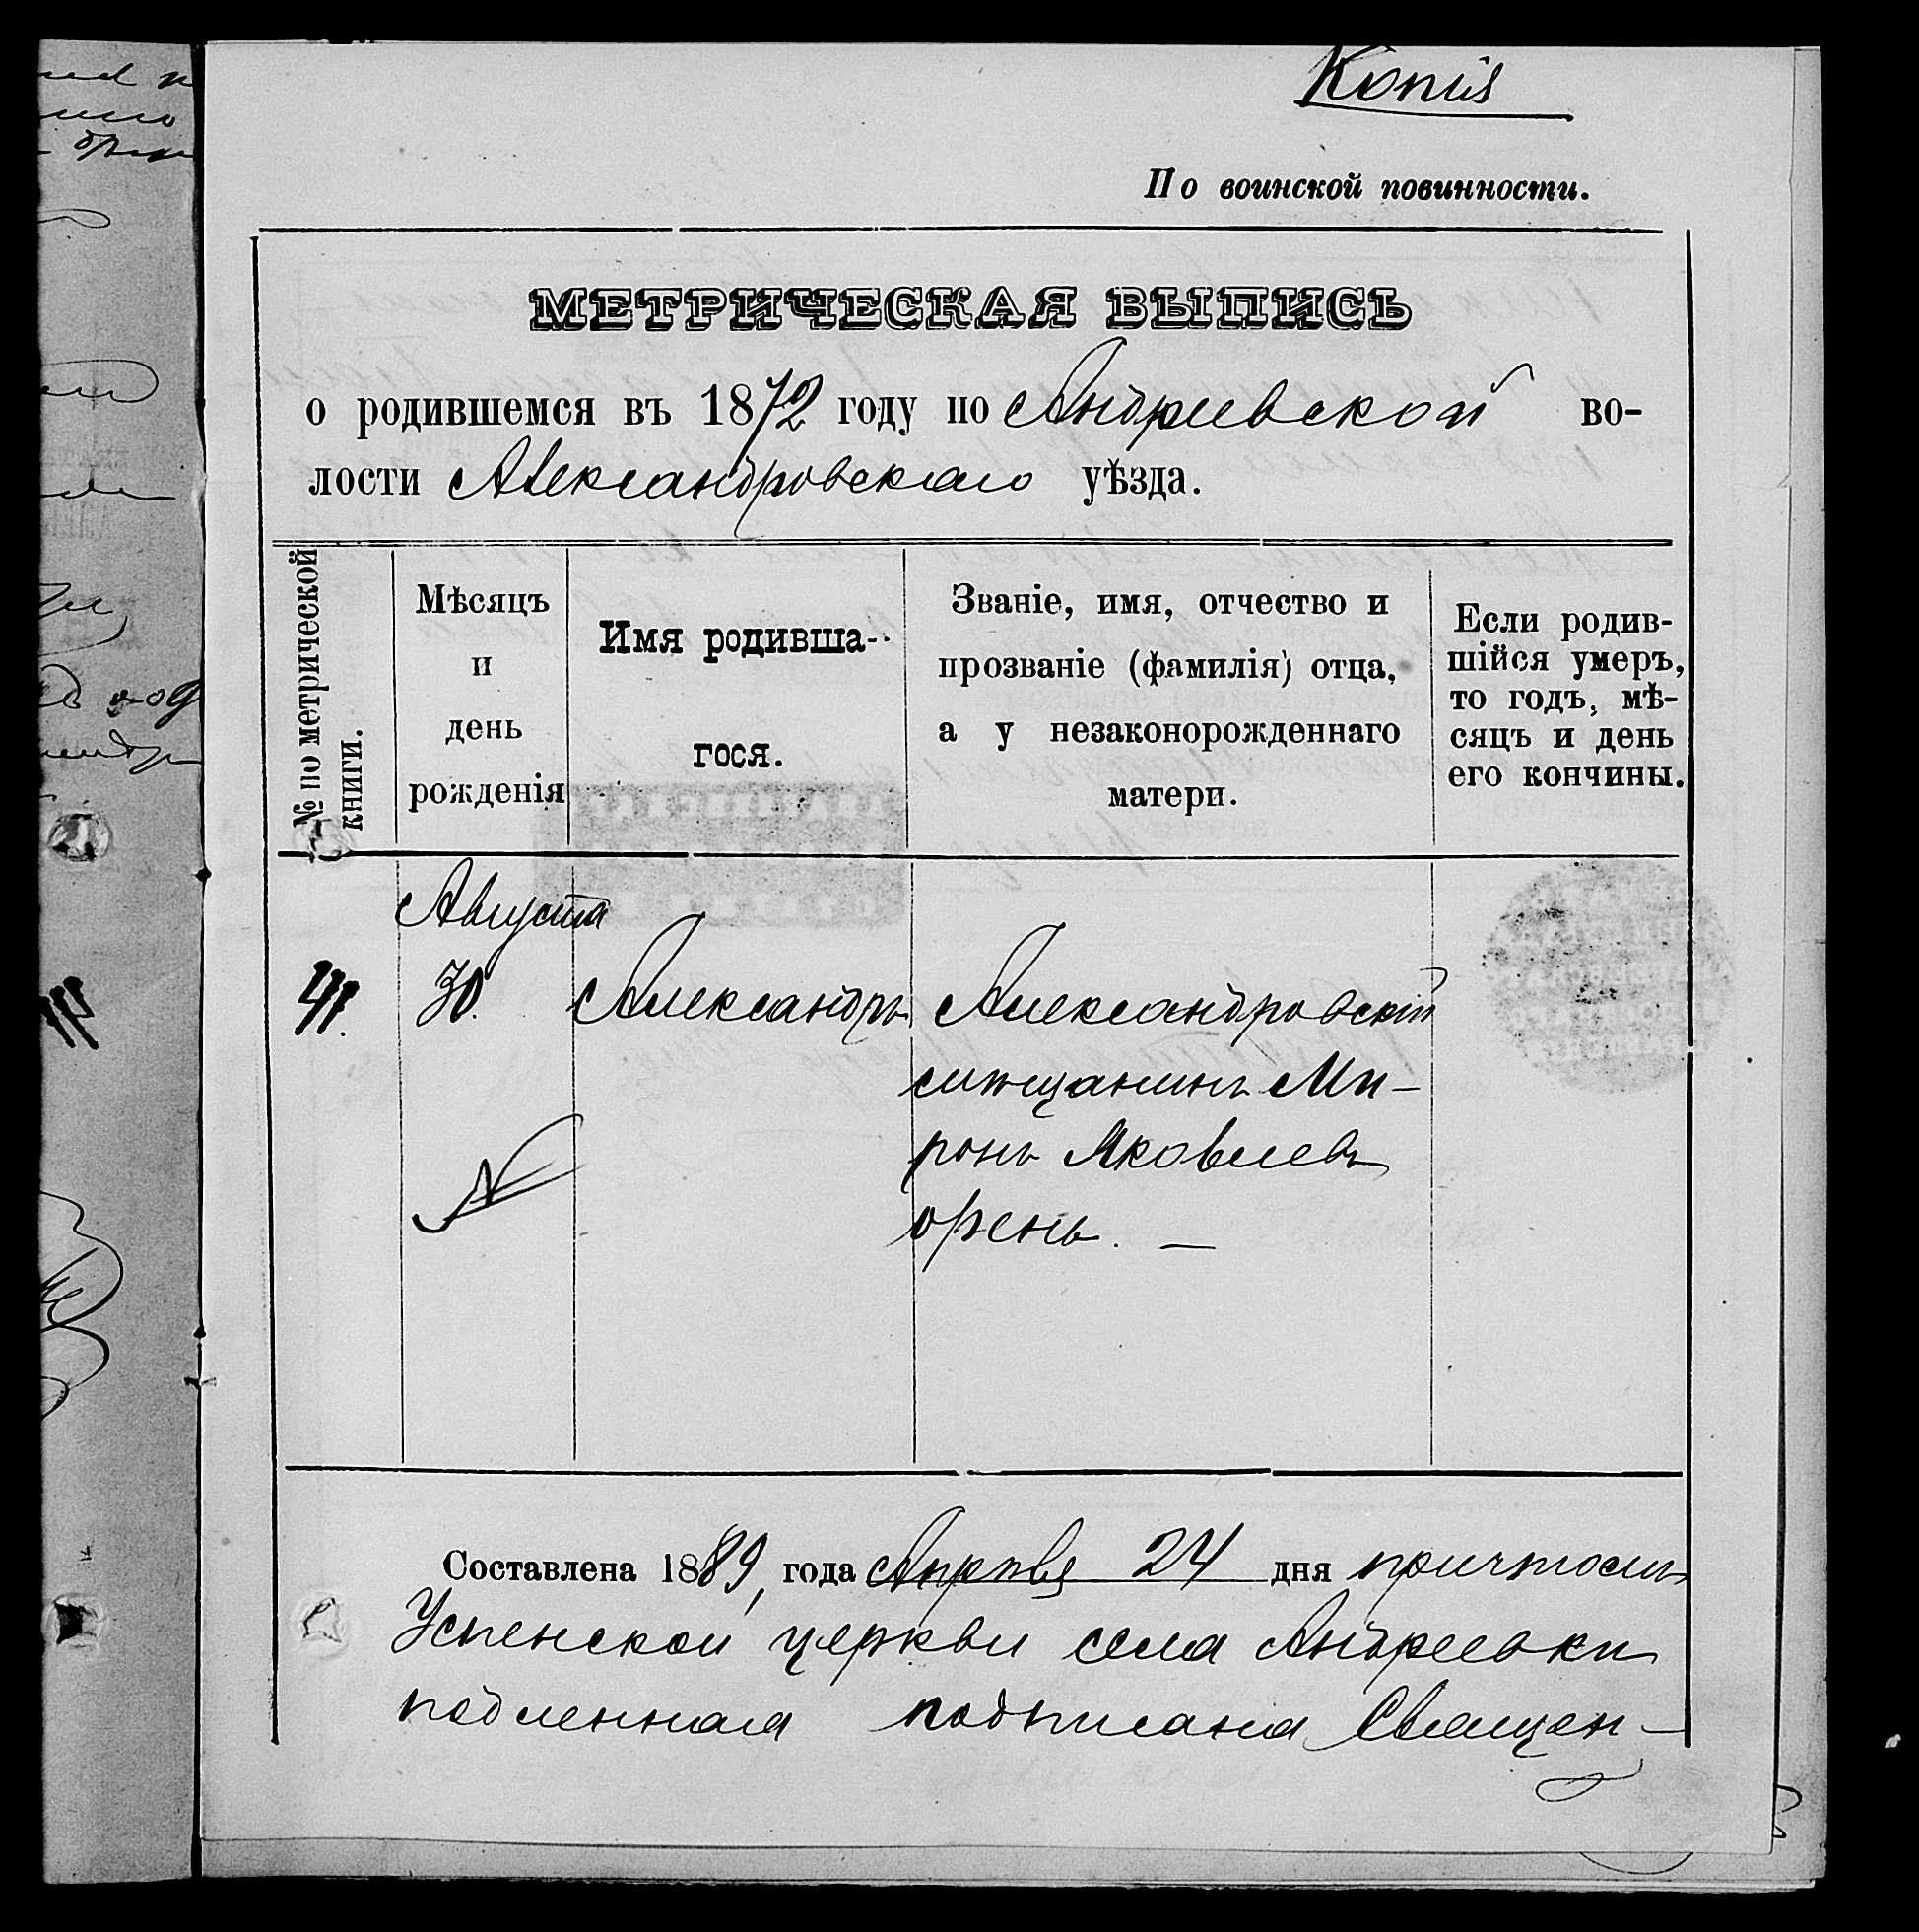 Копія
По воинской повинности.
МЕТРИЧЕСКАЯ ВЫПИСЬ
о родившемся въ 1872 году по Андреевской во-
лости Александровскаго уѣзда.
№ по метрической
книги.
Мѣсяцъ
и
день
рожденія
Имя родивша-
гося.
Званіе, имя, отчество и
прозваніе (фамилія) отца,
а у незаконорожденнаго
матери.
Если родив-
шійся умеръ,
то годъ, мѣ-
сяцъ и день
его кончины.
Августа
41. 30. Александръ Александровскій
мѣщанинъ Ми-
ронъ Яковлевъ
Составлена 1889, года Апрѣля 24 дня причтомъ
Успенской церкви села Андреевки
подленная подписана Священ-